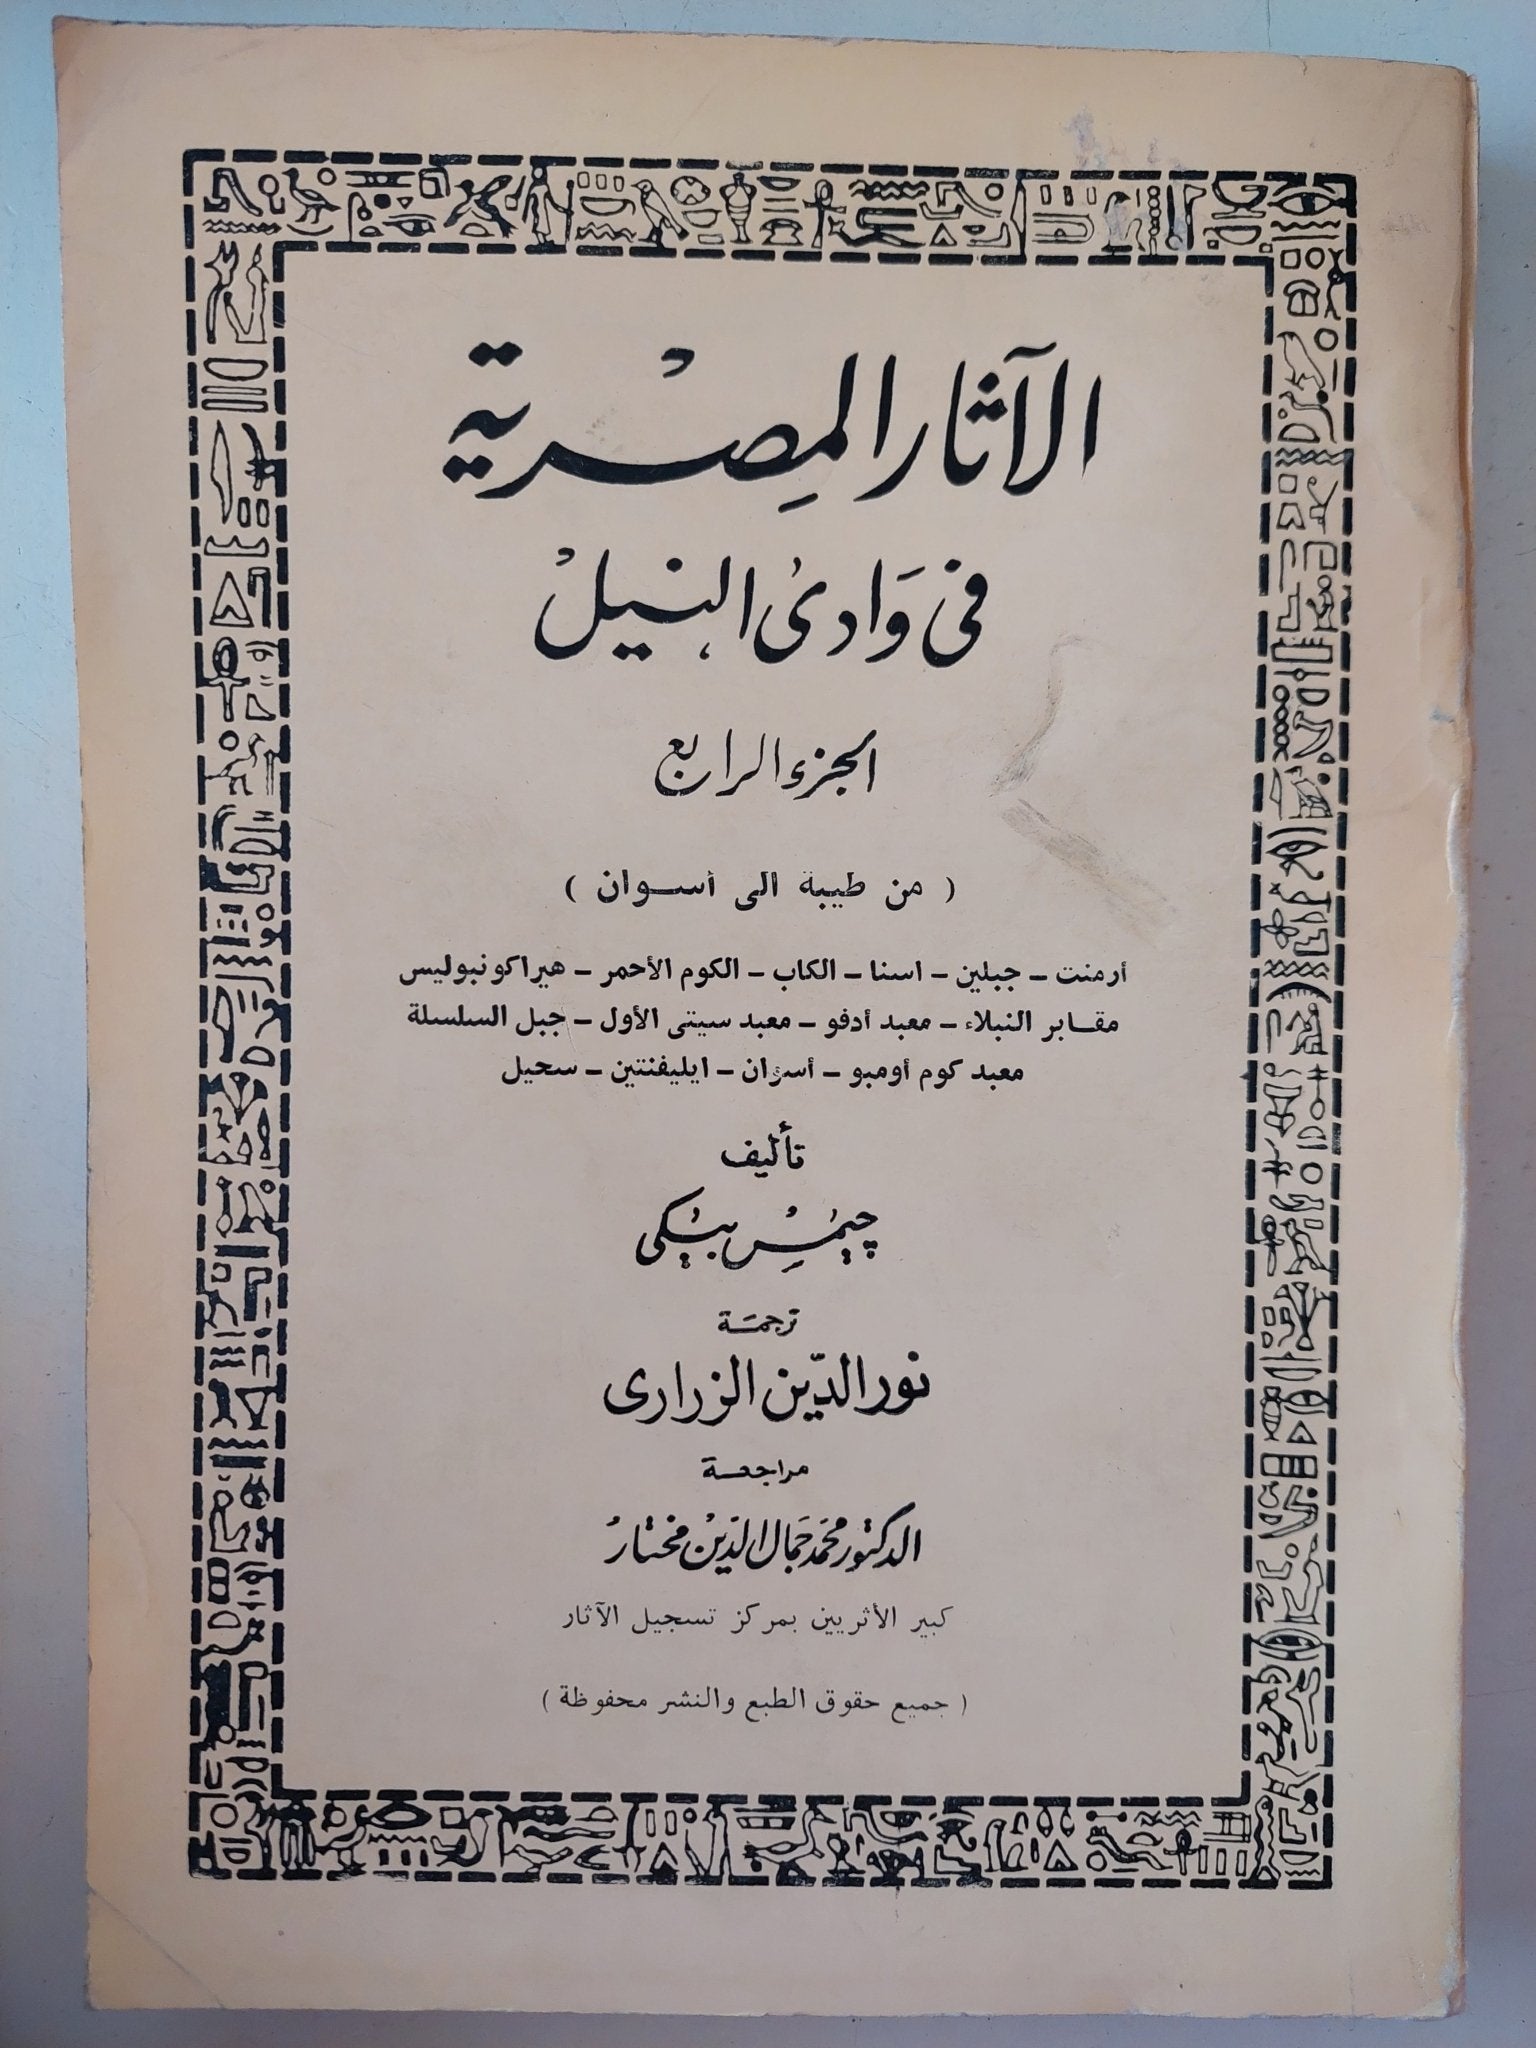 الآثار المصرية
فى وادى النيل
الجزء الرابع
( من طيبة الى أسوان )
أرمنت – جبلين – اسنا – الكاب – الكوم الأحمر – هيراكونبوليس
مقابر النبلاء – معبد أدفو – معبد سيتى الأول – جبل السلسلة
معبد كوم أومبو – أسوان – ايليفنتين – سحيل
تأليف
چيمس بيكى
ترجمة
نور الدين الزرارى
مراجعة
الدكتور محمد جمال الدين مختار
كبير الأثريين بمركز تسجيل الآثار
( جميع حقوق الطبع والنشر محفوظة )